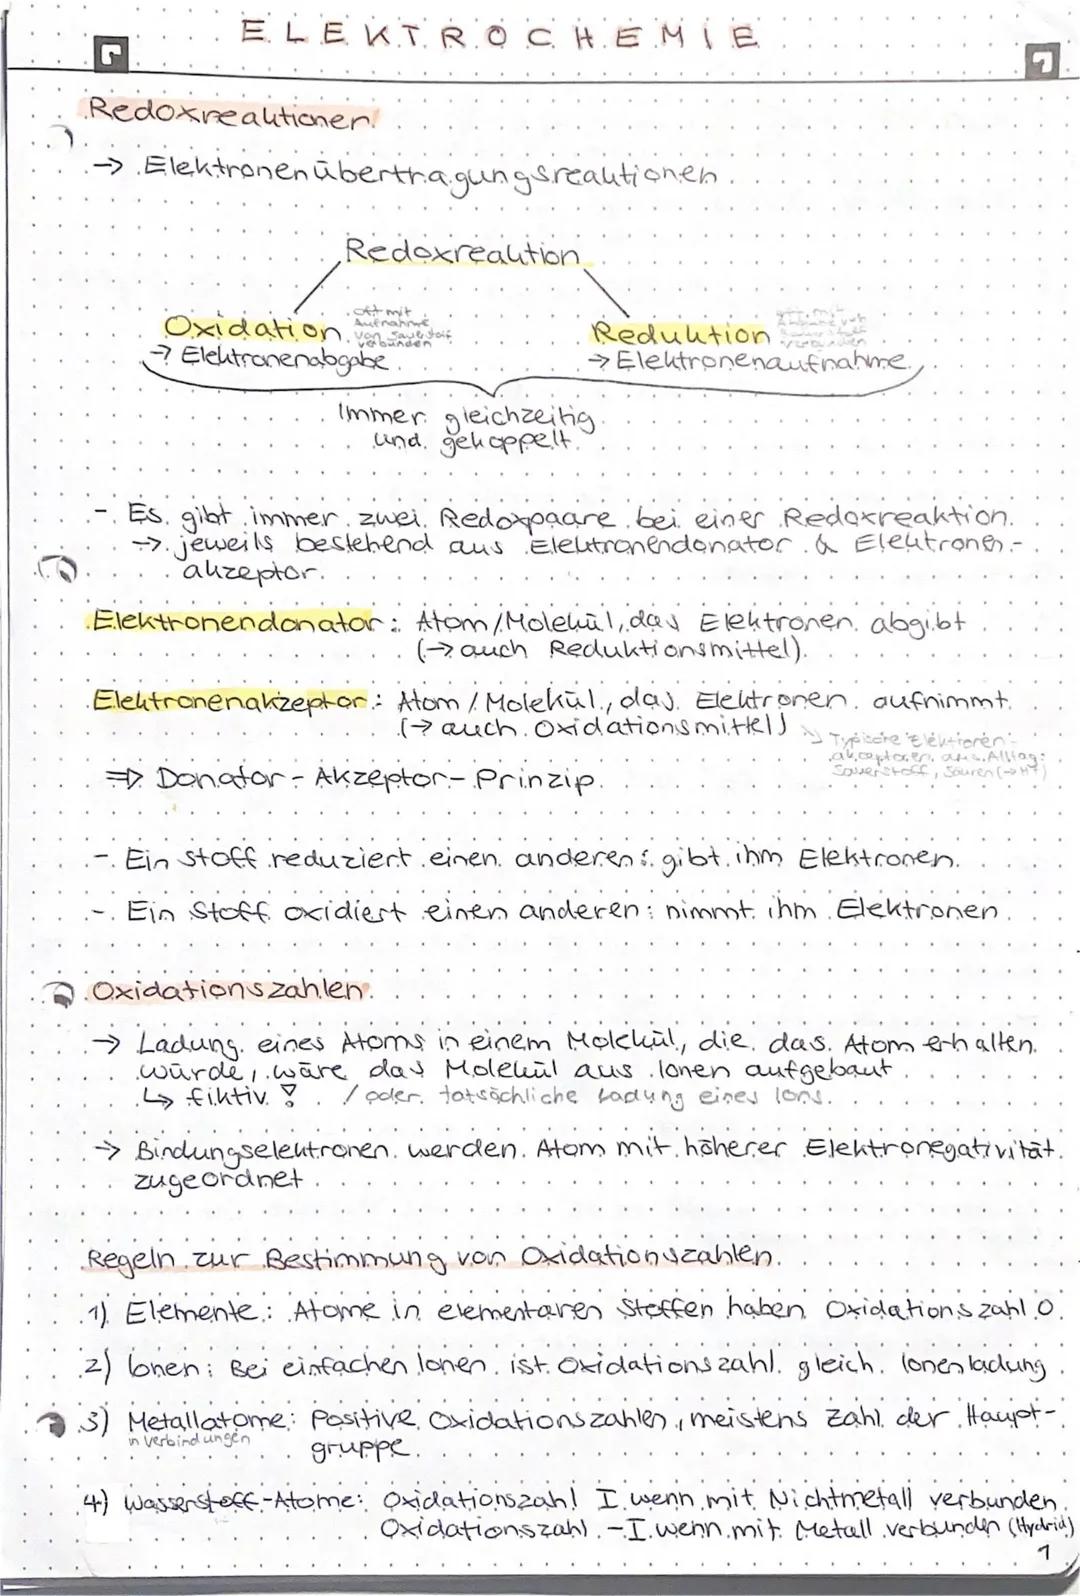 ELEKTROCHEMIE
Redoxreaktionen
→ Elektronenübertragungsreaktionen
Redoxreaktion
Oxidation
oft mit
Aufnahme
von Sauerstoff
verbunden
→ Elektronenabgabe
Reduktion
oft mit
Abgabe von
Sauerstoff
verbunden
→ Elektronenaufnahme
Immer gleichzeitig
und gekoppelt
- Es gibt immer zwei Redoxpaare bei einer Redoxreaktion.
→ jeweils bestehend aus Elektronendonator & Elektronen-
akzeptor.
Elektronendonator: Atom/Molekül, das Elektronen abgibt
(→ auch Reduktionsmittel)
Elektronenakzeptor: Atom/Molekül, das Elektronen aufnimmt
(→ auch Oxidationsmittel)
Typische Elektronen-
akzeptoren aus Alltag:
Sauerstoff, Säuren (→H⁺)
⇒ Donator-Akzeptor-Prinzip
- Ein Stoff reduziert einen anderen: gibt ihm Elektronen.
- Ein Stoff oxidiert einen anderen: nimmt ihm Elektronen.
Oxidationszahlen
→ Ladung eines Atoms in einem Molekül, die das Atom erhalten
würde, wäre das Molekül aus Ionen aufgebaut
↳ fiktiv! / oder tatsächliche Ladung eines Ions.
→ Bindungselektronen werden Atom mit höherer Elektronegativität
zugeordnet
Regeln zur Bestimmung von Oxidationszahlen
1) Elemente: Atome in elementaren Stoffen haben Oxidationszahl 0.
2) Ionen: Bei einfachen Ionen ist Oxidationszahl gleich Ionenladung
3) Metallatome: Positive Oxidationszahlen, meistens Zahl der Haupt-
in Verbindungen
gruppe.
4) Wasserstoff-Atome: Oxidationszahl I wenn mit Nichtmetall verbunden
Oxidationszahl -I wenn mit Metall verbunden (Hydrid)
1